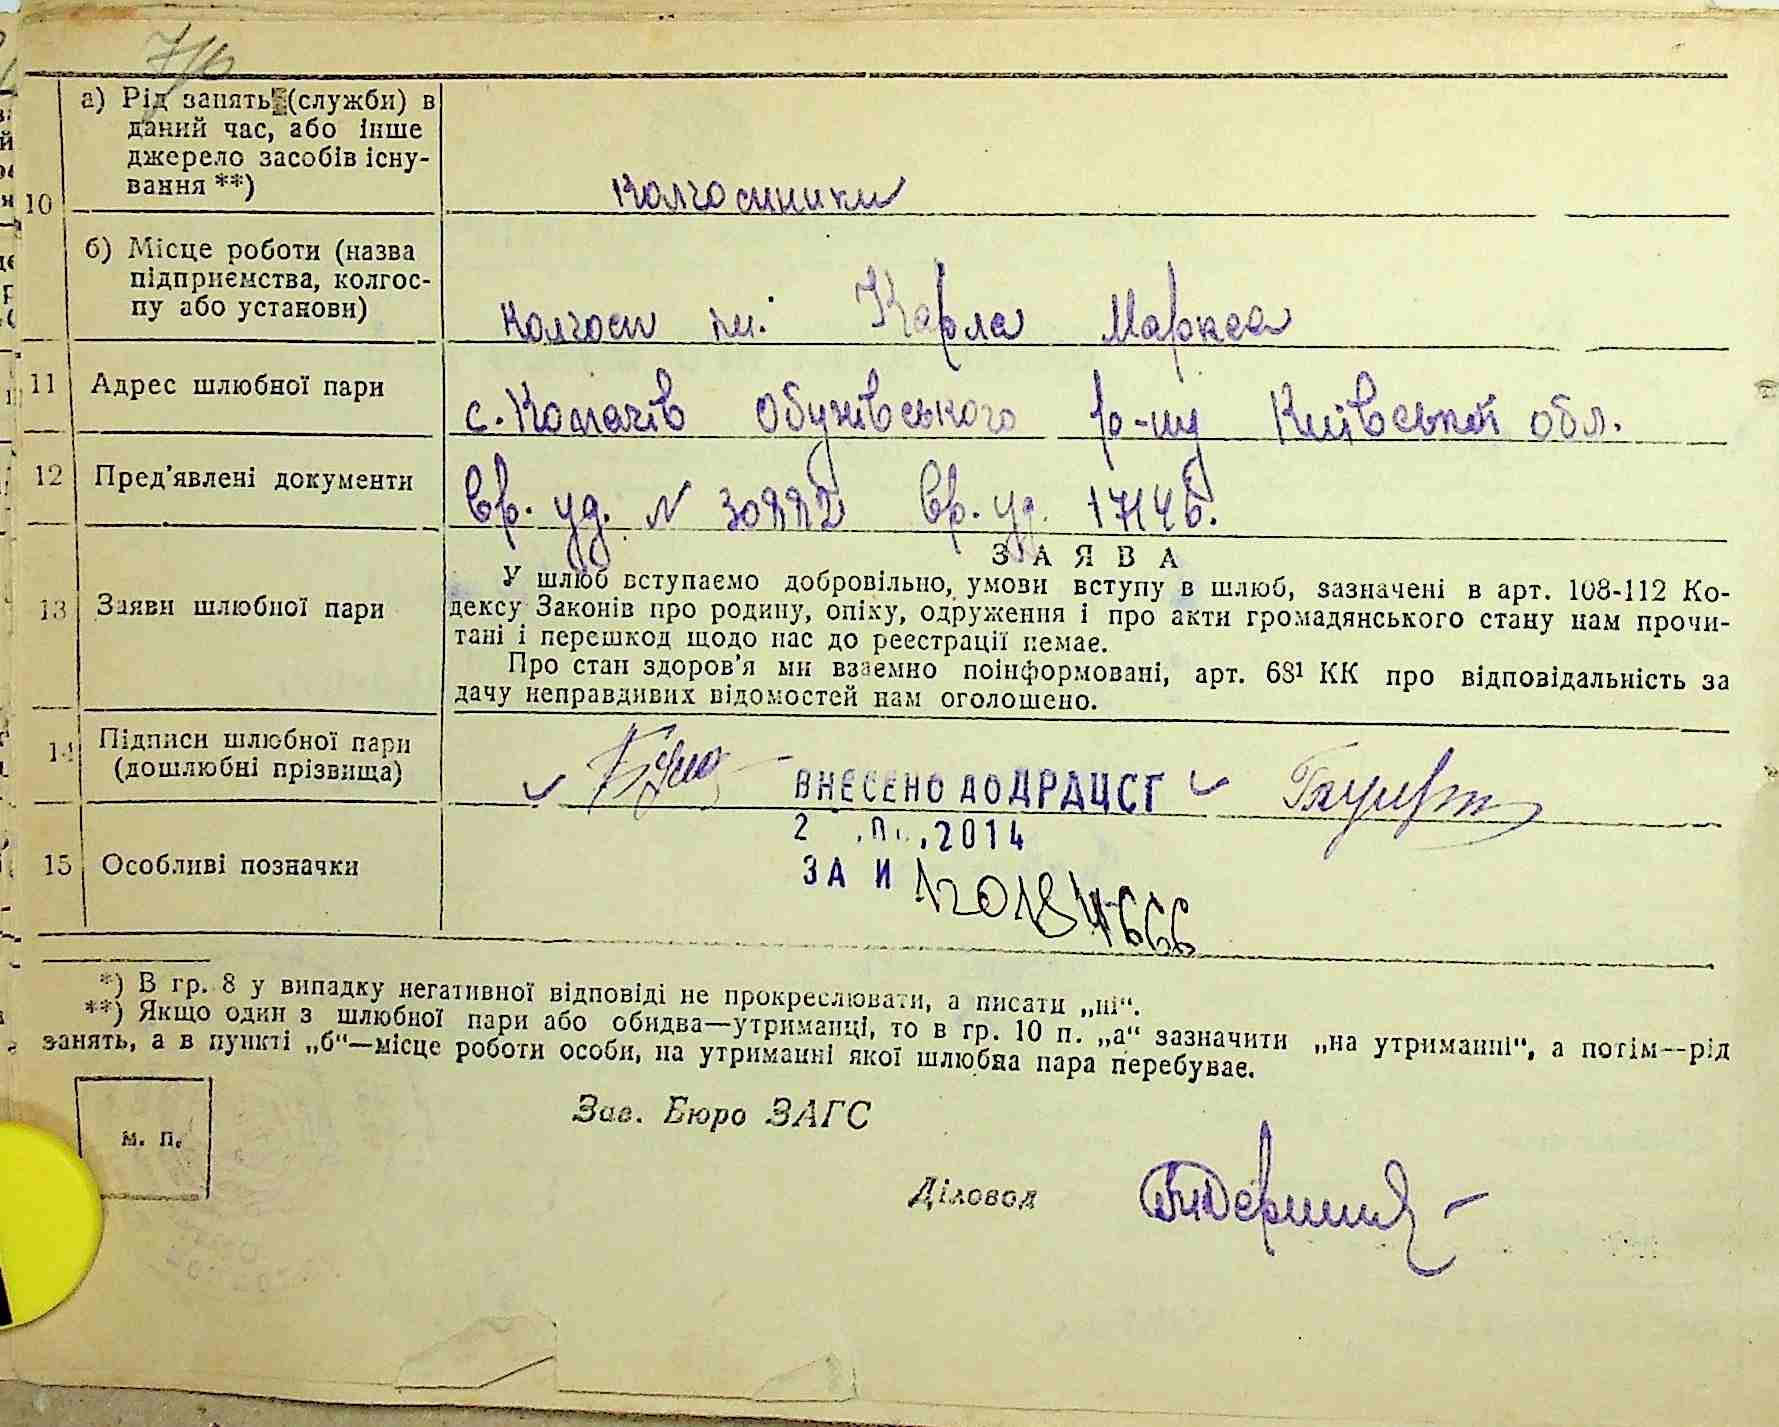 7/6
10
а) Рід занять (служби) в
даний час, або інше
джерело засобів існу-
вання **)
колгосиники
б) Місце роботи (назва
підприємства, колгос-
пу або установи)
колгосп ім. Карла Маркса
11 Адрес шлюбної пари
с. Копачів Обухівського р-ну Київської обл.
12 Пред'явлені документи
Вр. уд. N 30882 Вр. уд. 17146.
13 Заяви шлюбної пари
ЗАЯВА
У шлюб вступаємо добровільно, умови вступу в шлюб, зазначені в арт. 108-112 Ко-
дексу Законів про родину, опіку, одруження і про акти громадянського стану нам прочи-
тані і перешкод щодо нас до реєстрації немає.
Про стан здоров'я ми взаємно поінформовані, арт. 68¹ КК про відповідальність за
дачу неправдивих відомостей нам оголошено.
14 Підписи шлюбної пари
(дошлюбні прізвища)
ВНЕСЕНО ДО ДРАЦСГ
2 .П. .2014
15 Особливі позначки
ЗА И 120184666
*) В гр. 8 у випадку негативної відповіді не прокреслювати, а писати „ні“.
**) Якщо один з шлюбної пари або обидва—утриманці, то в гр. 10 п. „а“ зазначити „на утриманні“, а потім—рід
занять, а в пункті „б“—місце роботи особи, на утриманні якої шлюбна пара перебуває.
М. П.
Зав. Бюро ЗАГС
Діловод